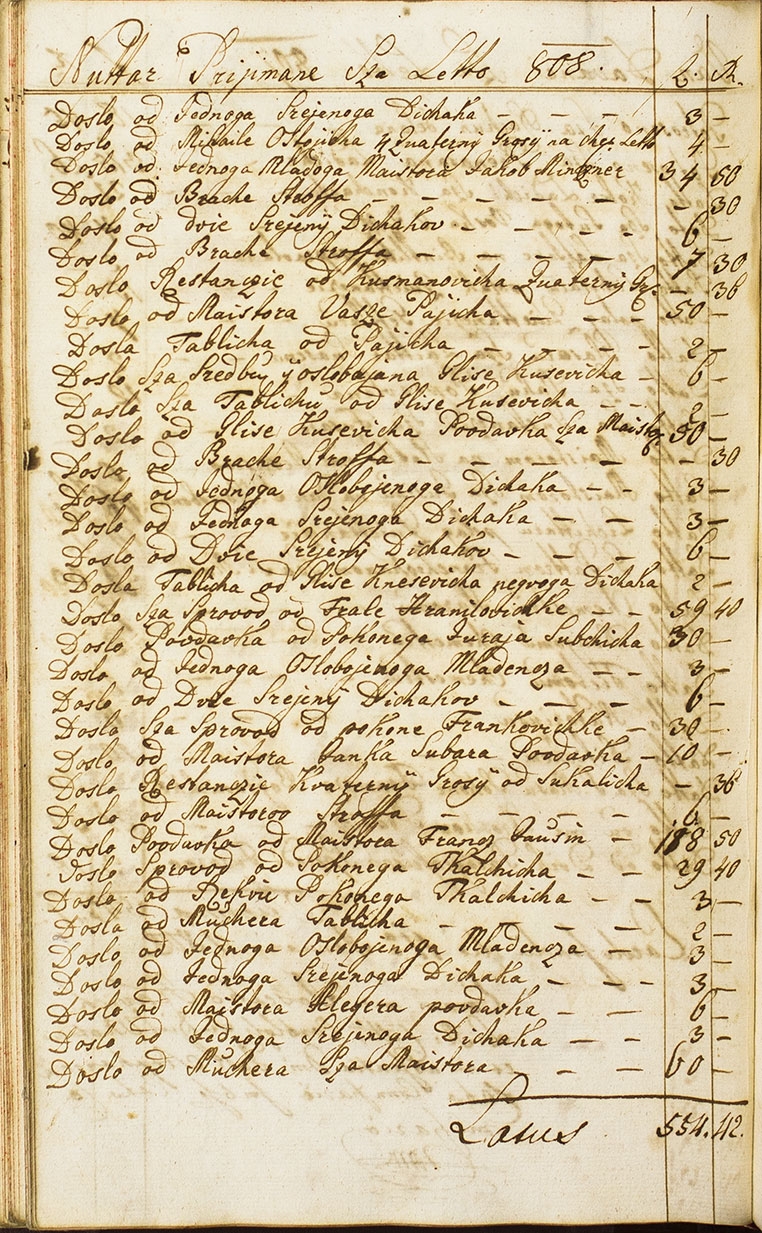 Nuttar Prijmane Sza Letto 808. L. X.
Doslo od Jednoga Srejenoga Dichaka — — — 3 —
Doslo od Mihaile Ostojicha 4 Quaterny Grosÿ na chez Letto 4 —
Doslo od Jednoga Mladoga Maistora Jakob 34 50
Doslo od Brache Stroffa — — — — — — — 30
Doslo od dvie Srejenÿ Dichakov — — — — 6 —
Doslo od Brache Stroffa — — — — — 7 30
Doslo Restanczie od Kusmanovicha Quaternÿ Gr. — 36
Doslo od Maistora Vasze Pajicha — — — 50 —
Dosla Tablicha od Pajicha — — — — 2 —
Doslo Sza Sredbu ÿ oslobojana Glise Kusevicha — 6 —
Doslo Sza Tablichu od Glise Kusevicha — — 2 —
Doslo od Glise Kusevicha Povdavka Sza Maist. 50 —
Doslo od Brache Stroffa — — — — — — 30
Doslo od Jednoga Oslobojenoga Dichaka — — 3 —
Doslo od Jednoga Srejenoga Dichaka — — — 3 —
Doslo od Dvie Srejenÿ Dichakov — — — — 6 —
Dosla Tablicha od Glise Knesevicha negvoga Dichaka 2 —
Doslo Sza Sprovod od Frale Hranilovichke — — 59 40
Doslo Povdavka od Pokonega Juraja Subchicha 30 —
Doslo od Jednoga Oslobojenoga Mladencza — — 3 —
Doslo od Dvie Srejenÿ Dichakov — — — — 6 —
Doslo Sza Sprovod od pokone Frankovichke — 30 —
Doslo od Maistora Janka Subara Povdavka — 10 —
Doslo Restanczie Kvaternÿ Grosÿ od Sukalicha — 36
Doslo od Maistorov Stroffa — — — — — 6 —
Doslo Povdavka od Maistora Francz Jausin — 188 50
Doslo Sprovod od Pokonega Thalchicha — — 29 40
Doslo od Rekvie Pokonega Thalchicha — — 3 —
Dosla od Muchera Tablicha — — — — 2 —
Doslo od Jednoga Oslobojenoga Mladencza — 3 —
Doslo od Jednoga Srejenoga Dichaka — — — 3 —
Doslo od Maistora Klegera povdavka — — — 6 —
Doslo od Jednoga Srejenoga Dichaka — — — 3 —
Doslo od Muchera Sza Maistora — — — 60 —
Latus 554. 42.